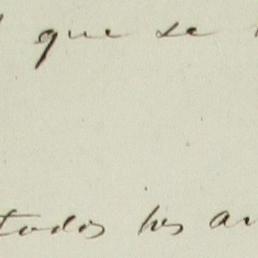 que se
todos los